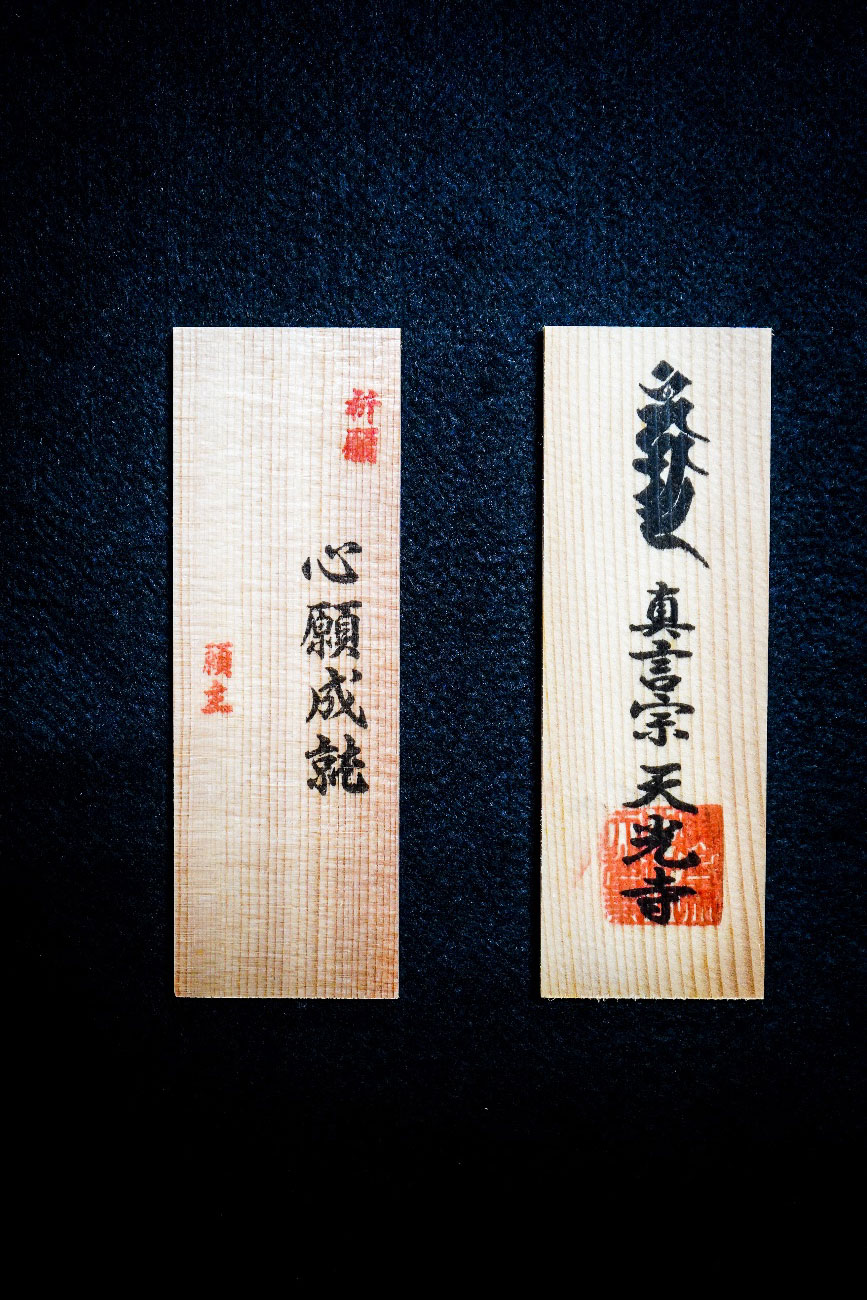 祈願
心願成就
願主
真言宗 天光寺